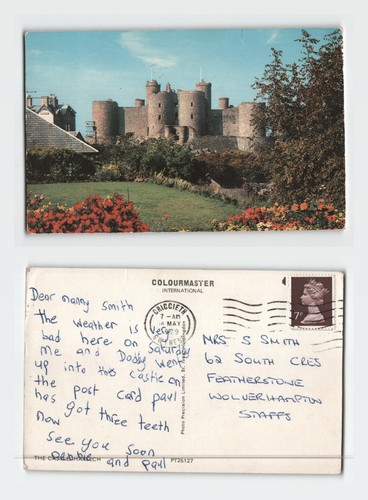 COLOURMASTER
INTERNATIONAL
Dear nanny Smith
the weather is very
bad here on Saturday
me and Daddy went
up into this castle on
the post card paul
has got three teeth
now
see you soon
and paul
CRICCIETH
7-AM
MAY
1979
7P
MRS S SMITH
62 SOUTH CRES
FEATHERSTONE
WOLVERHAMPTON
STAFFS
Photo Precision Limited, St.
THE CASTLE, HARLECH
PT26127